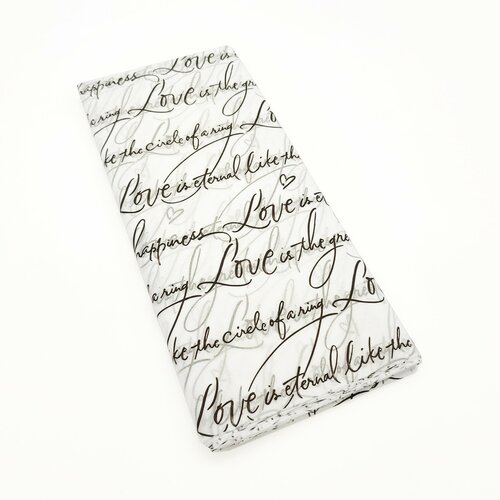 happiness Love is the gre
a ring Love is the gre
ke the circle of a ring
Love is eternal like the
happiness Love is et
Love is the gre
a ring Lo
ke the circle of a ring
Love is eternal like the